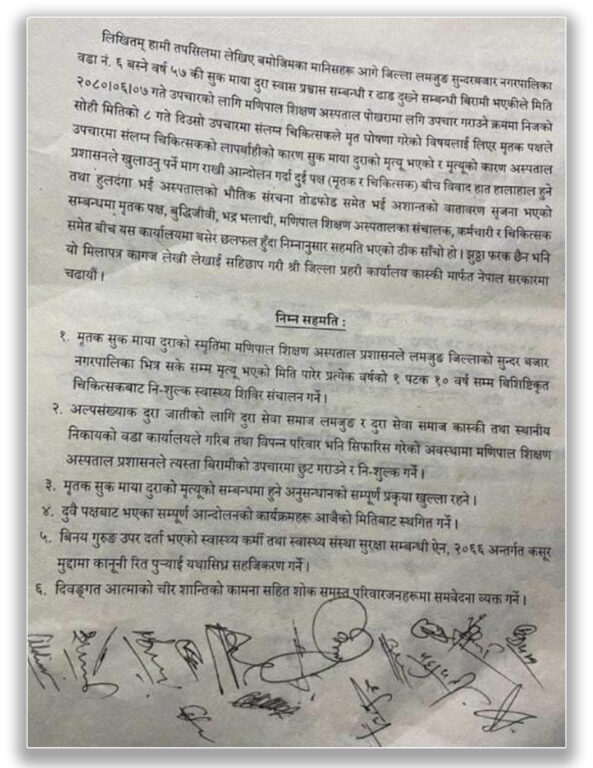 लिखितम् हामी तपसिलमा लेखिए बमोजिमका मानिसहरू आगे जिल्ला लमजुङ सुन्दरबजार नगरपालिका
वडा नं. ६ बस्ने वर्ष ५७ की सुक माया दुरा स्वास प्रश्वास सम्बन्धी र ढाड दुख्ने सम्बन्धी बिरामी भएकीले मिति
२०८०।०६।०७ गते उपचारको लागि मणिपाल शिक्षण अस्पताल पोखरामा लगि उपचार गराउने क्रममा निजको
सोही मितिको ८ गते दिउसो उपचारमा संलग्न चिकित्सकले मृत घोषणा गरेको विषयलाई लिएर मृतक पक्षले
उपचारमा संलग्न चिकित्सकको लापर्बाहीको कारण सुक माया दुराको मृत्यू भएको र मृत्यूको कारण अस्पताल
प्रशासनले खुलाउनु पर्ने माग राखी आन्दोलन गर्दा दुई पक्ष (मृतक र चिकित्सक) बीच विवाद हात हालाहाल हुने
तथा हुलदंगा भई अस्पतालको भौतिक संरचना तोडफोड समेत भई अशान्तको वातावरण सृजना भएको
सम्बन्धमा मृतक पक्ष, बुद्धिजीवी, भद्र भलाद्मी, मणिपाल शिक्षण अस्पतालका संचालक, कर्मचारी र चिकित्सक
समेत बीच यस कार्यालयमा बसेर छलफल हुँदा निम्नानुसार सहमति भएको ठीक साँचो हो । झुठ्ठा फरक छैन भनि
यो मिलापत्र कागज लेखी लेखाई सहिछाप गरी श्री जिल्ला प्रहरी कार्यालय कास्की मार्फत नेपाल सरकारमा
चढायौं ।
निम्न सहमति :
१. मृतक सुक माया दुराको स्मृतिमा मणिपाल शिक्षण अस्पताल प्रशासनले लमजुङ जिल्लाको सुन्दर बजार
नगरपालिका भित्र सके सम्म मृत्यू भएको मिति पारेर प्रत्येक वर्षको १ पटक १० वर्ष सम्म बिशिष्टिकृत
चिकित्सकबाट नि-शुल्क स्वास्थ्य शिविर संचालन गर्ने ।
२. अल्पसंख्यक दुरा जातीको लागि दुरा सेवा समाज लमजुङ र दुरा सेवा समाज कास्की तथा स्थानीय
निकायको वडा कार्यालयले गरिब तथा विपन्न परिवार भनि सिफारिस गरेको अवस्थामा मणिपाल शिक्षण
अस्पताल प्रशासनले त्यस्ता बिरामीको उपचारमा छुट गराउने र नि-शुल्क गर्ने ।
३. मृतक सुक माया दुराको मृत्यूको सम्बन्धमा हुने अनुसन्धानको सम्पूर्ण प्रकृया खुल्ला रहने ।
४. दुवै पक्षबाट भएका सम्पूर्ण आन्दोलनको कार्यक्रमहरू आजैको मितिबाट स्थगित गर्ने ।
५. बिनय गुरुङ उपर दर्ता भएको स्वास्थ्य कर्मी तथा स्वास्थ्य संस्था सुरक्षा सम्बन्धी ऐन, २०६६ अन्तर्गत कसूर
मुद्दामा कानूनी रित पुऱ्याई यथासिघ्र सहजिकरण गर्ने ।
६. दिवङ्गत आत्माको चीर शान्तिको कामना सहित शोक समस्त परिवारजनहरूमा समवेदना व्यक्त गर्ने ।